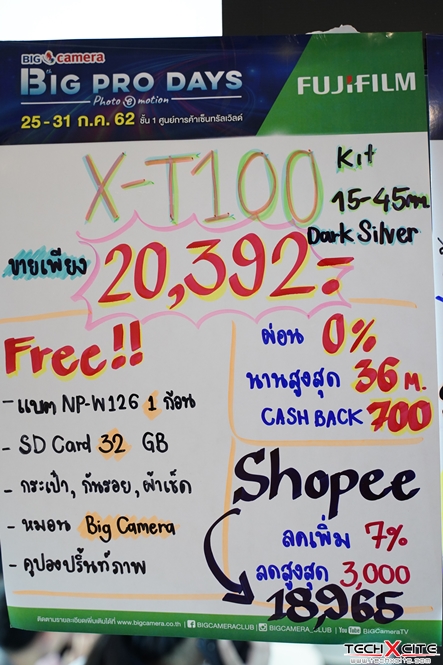 BIG camera
BIG PRO DAYS
Photo e motion
25-31 ก.ค. 62 ชั้น 1 ศูนย์การค้าเซ็นทรัลเวิลด์
FUJIFILM
X-T100 Kit
15-45mm
Dark Silver
ขายเพียง 20,392.-
Free!!
- แบต NP-W126 1 ก้อน
- SD Card 32 GB
- กระเป๋า, กันรอย, ผ้าเช็ด
- หมอน Big Camera
- คูปองปริ้นท์ภาพ
ผ่อน 0%
นานสูงสุด 36 M.
CASH BACK 700
Shopee
ลดเพิ่ม 7%
ลดสูงสุด 3,000
18,965
ติดตามรายละเอียดเพิ่มเติมได้ที่ www.bigcamera.co.th | BIGCAMERACLUB | BIG_CAMERA_CLUB | You Tube BigCameraTV
TECHXCITE
www.techxcite.com